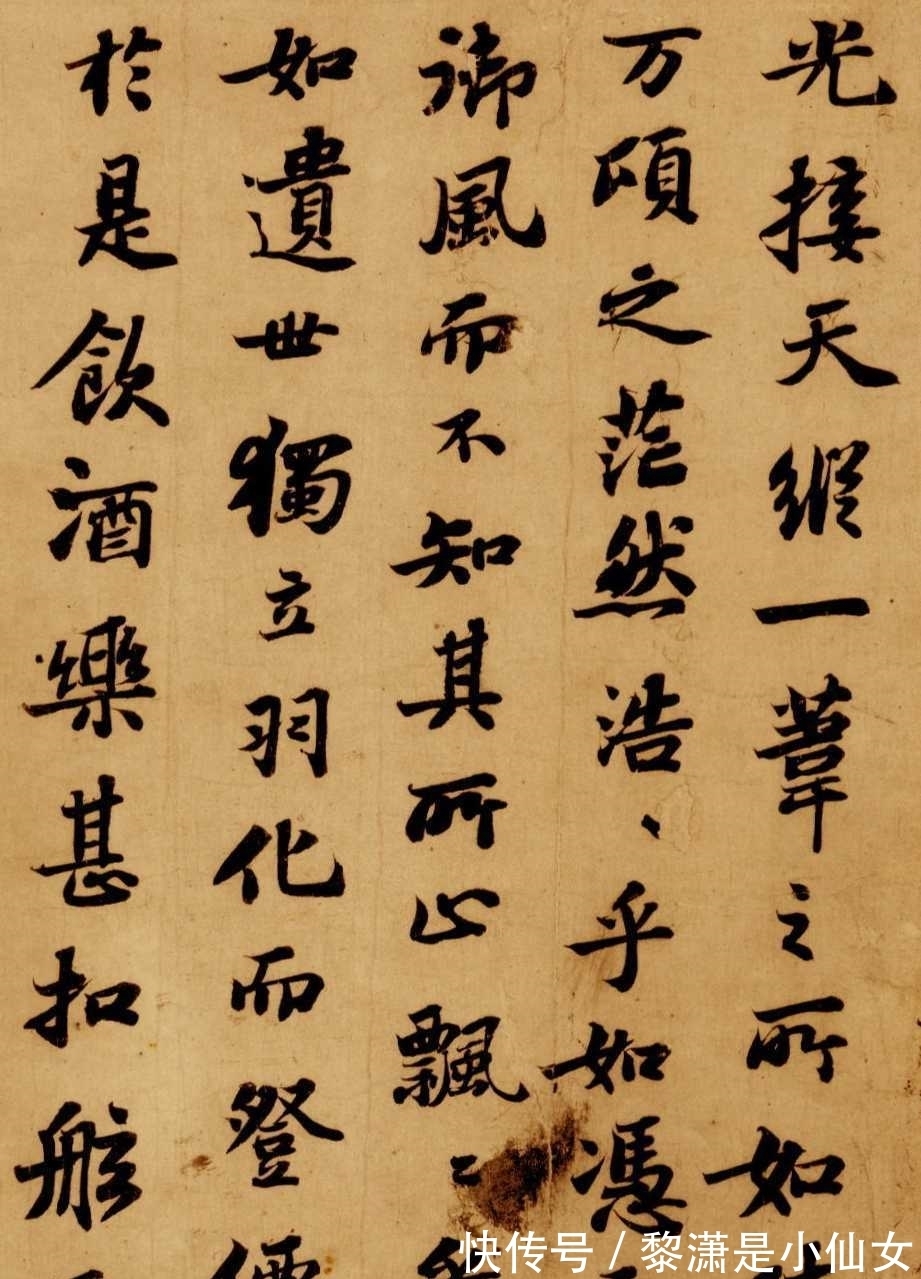 光接天縱一葦之所如
万頃之茫然浩、乎如憑
御風而不知其所止飄〻
如遺世獨立羽化而登
於是飲酒樂甚扣舷
快传号 / 黎潇是小仙女